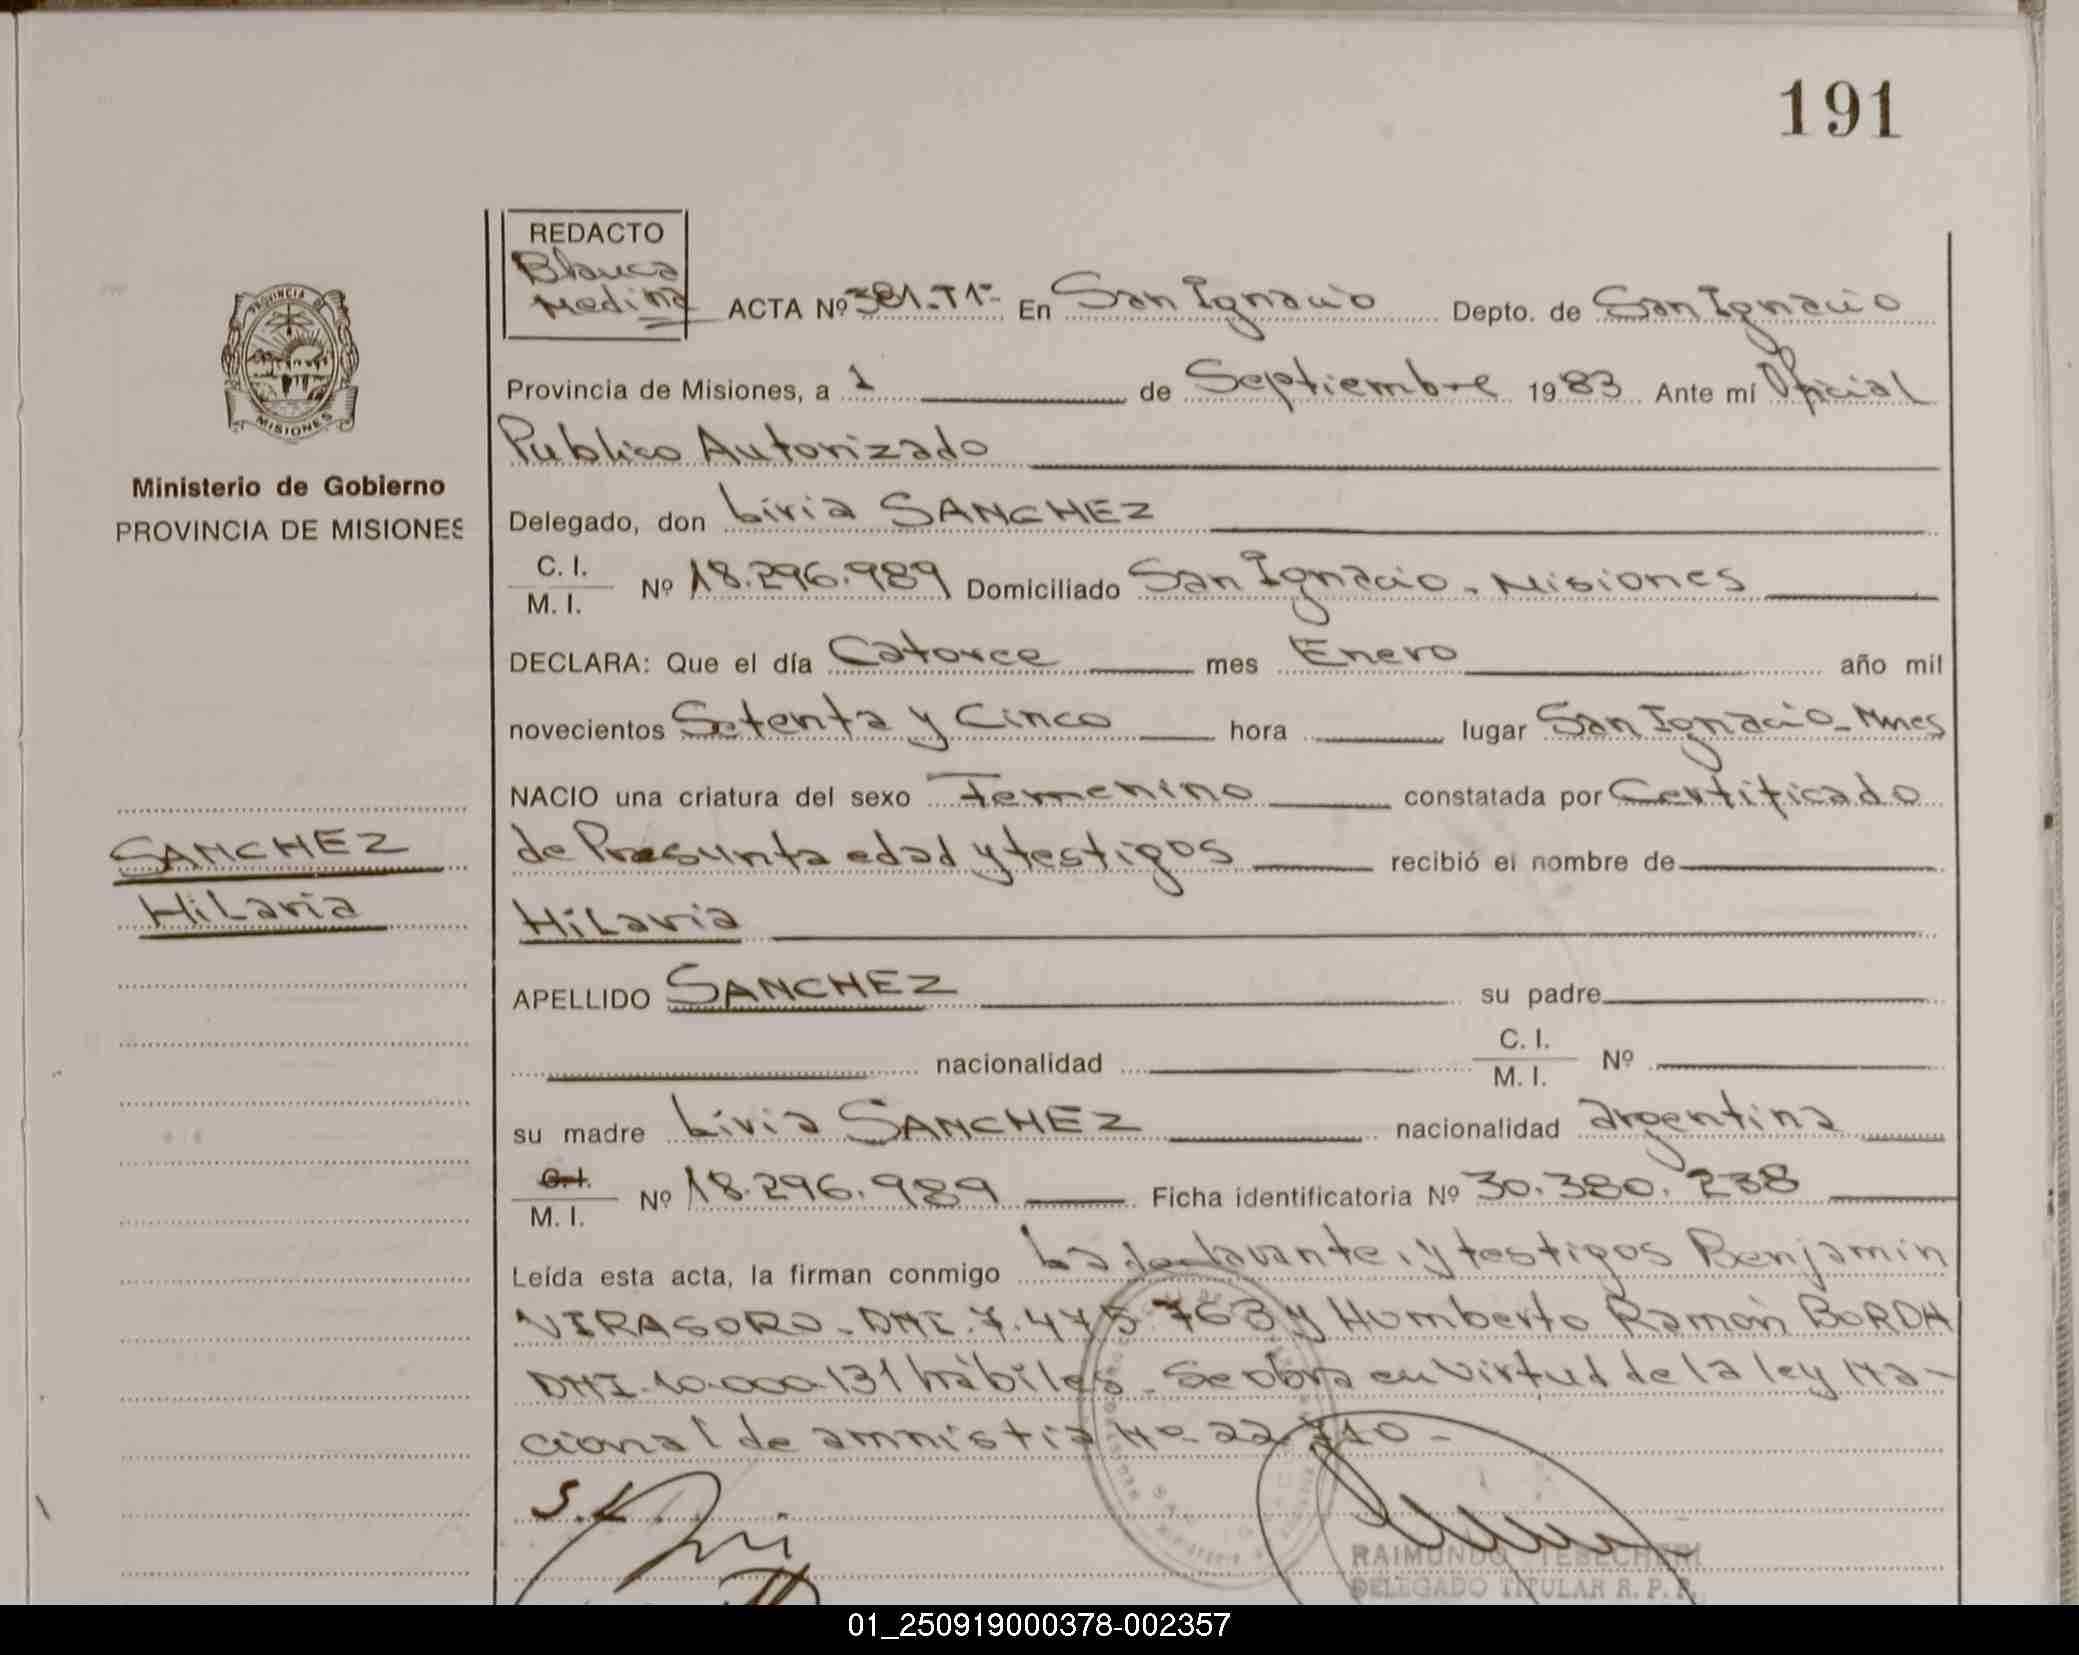 191
REDACTO
Blanca
Medina
ACTA Nº 381-T1º- En San Ignacio Depto. de San Ignacio
Provincia de Misiones, a 1 de Septiembre 1983 Ante mí Oficial
Publico Autorizado
MISIONES
Ministerio de Gobierno
PROVINCIA DE MISIONES
Delegado, don Livia SANCHEZ
C. I.
M. I. Nº 18.296.989 Domiciliado San Ignacio - Misiones
DECLARA: Que el día Catorce mes Enero año mil
novecientos Setenta y Cinco hora lugar San Ignacio - Mnes
NACIO una criatura del sexo Femenino constatada por Certificado
SANCHEZ
de Presunta edad y testigos recibió el nombre de
Hilaria
Hilaria
APELLIDO SANCHEZ su padre
nacionalidad C. I.
M. I. Nº
su madre Livia SANCHEZ nacionalidad argentina
C. I.
M. I. Nº 18.296.989 Ficha identificatoria Nº 30.380.238
Leída esta acta, la firman conmigo La declarante, y testigos Benjamin
VIRASORO - DNI. 7.475.763 y Humberto Ramón BORDA
DNI. 10.000.131 hábiles - Se obra en virtud de la ley Na-
cional de amnistia Nº 22.710 -
RAIMUNDO TEBECHERI
DELEGADO TITULAR R. P. P.
01_250919000378-002357